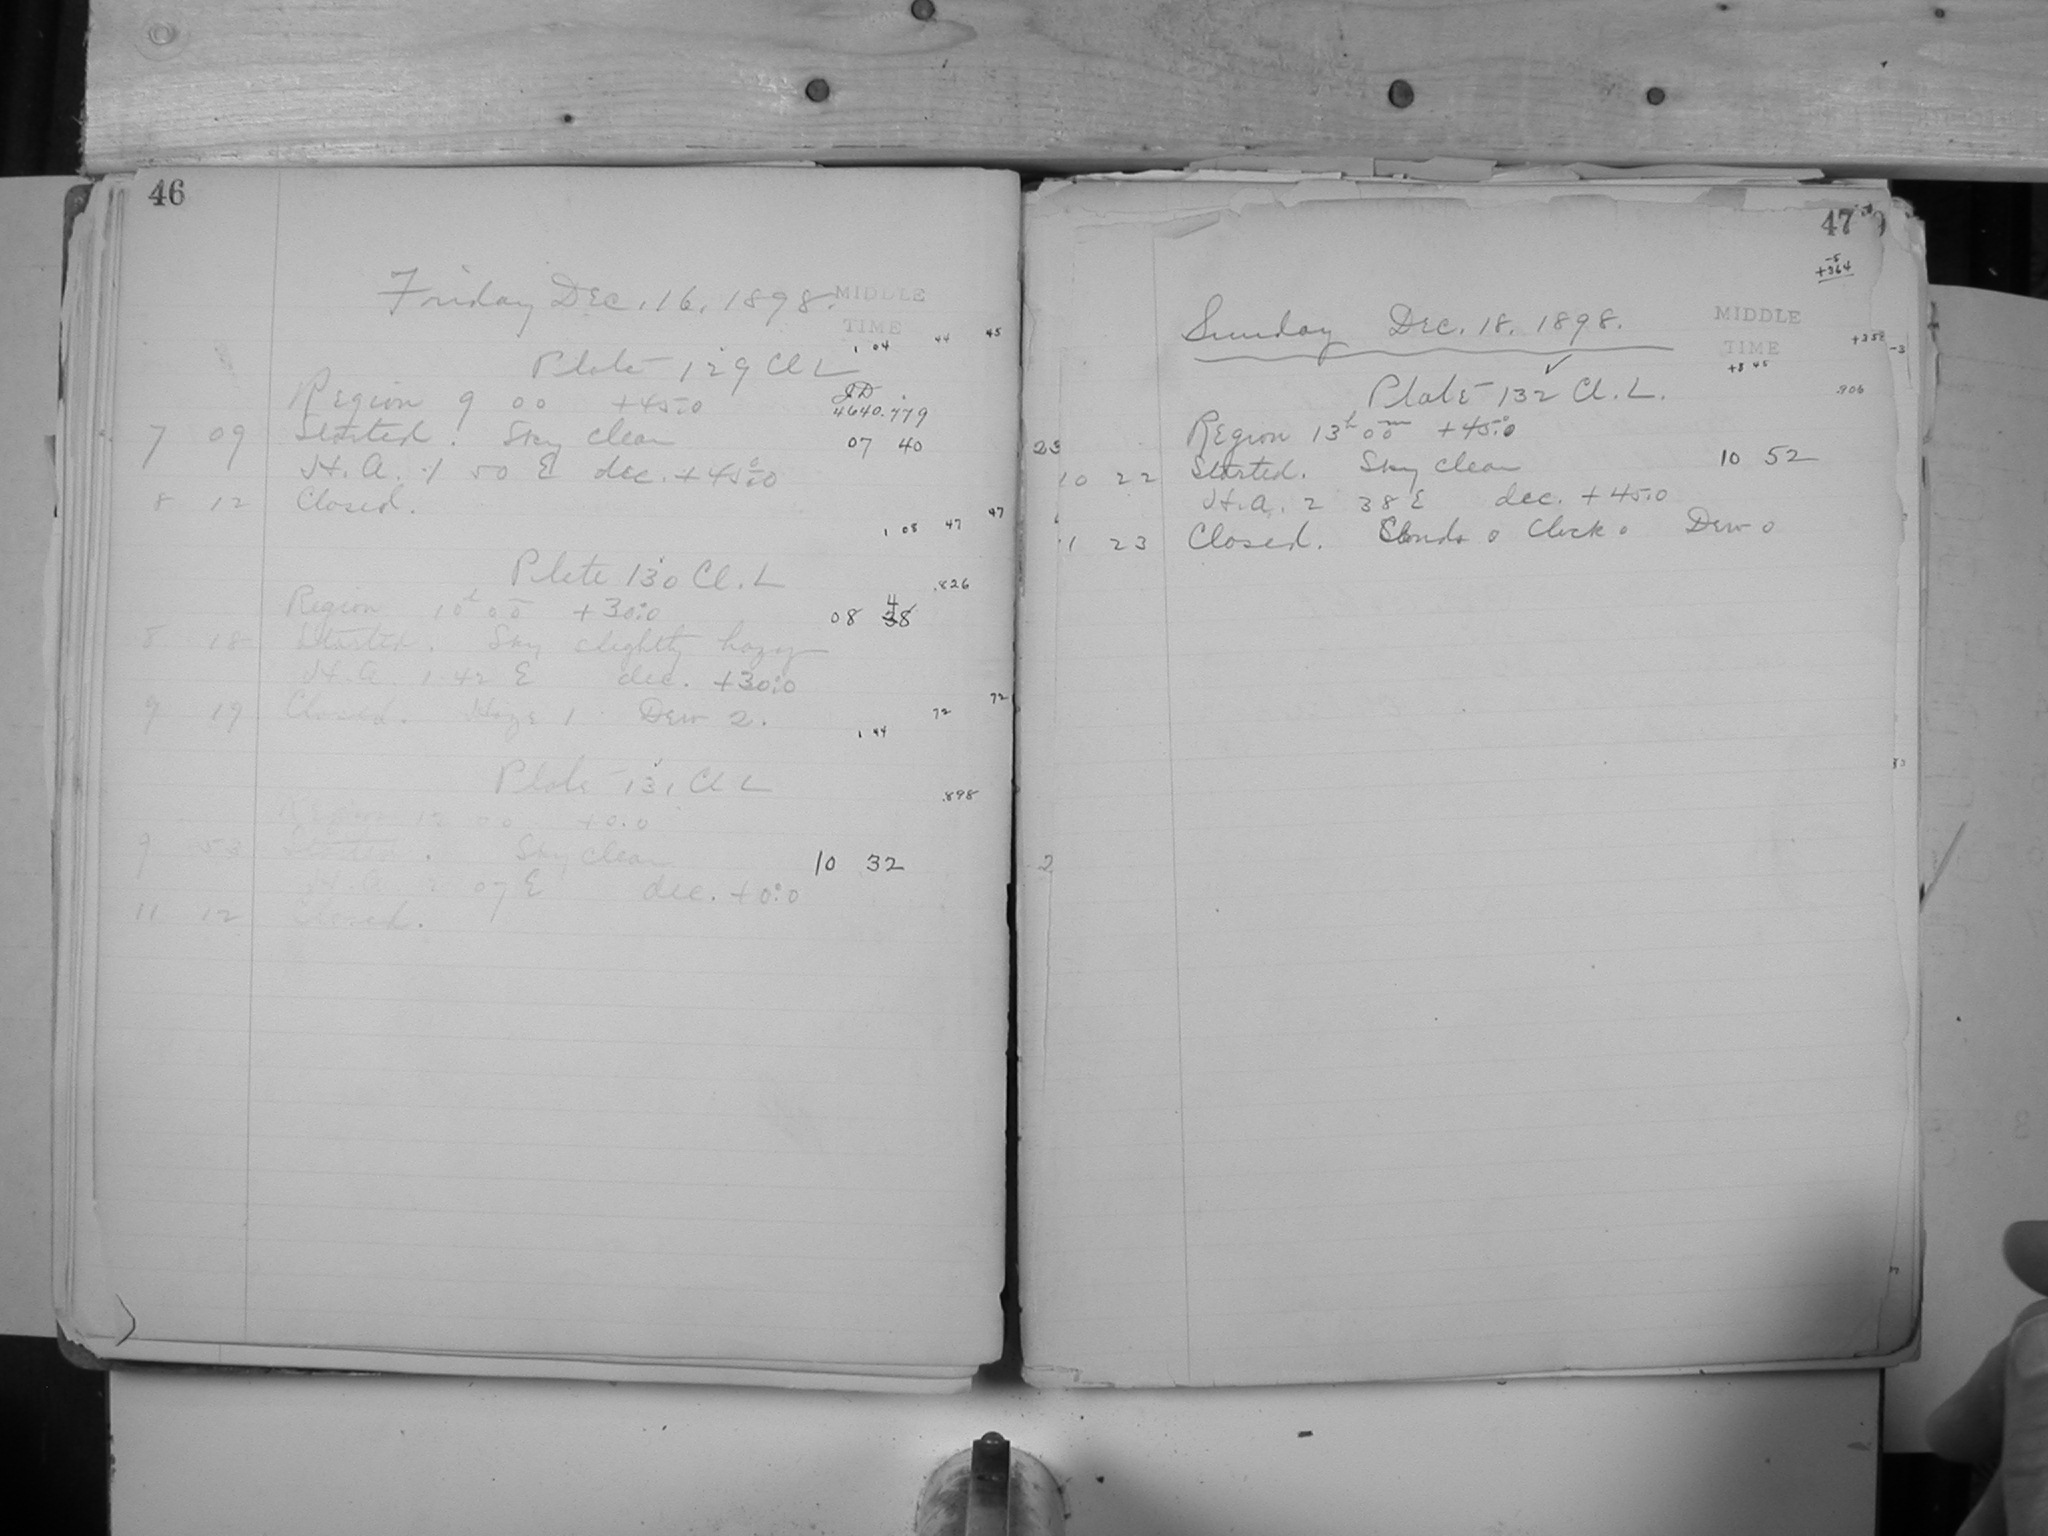 46
Friday Dec. 16, 1898.
MIDDLE
TIME
1 04 44 45
Plate 129 Cl L
JD
Region 9 00 +45.0 4640.779
7 09 Started. Sky clear 07 40
H.A. 1 50 E dec. +45°.0
8 12 Closed.
1 08 47 47
Plate 130 Cl. L
.826
Region 10h 00m +30°.0
4
08 38
8 18 Started. Sky slightly hazy
H.A. 1 42 E dec. +30°.0
9 19 Closed. Haze 1 Dew 2.
1 44 72 72
Plate 131 Cl L
.898
Region 12 00 +0.0
9 53 Started. Sky clear 10 32
H.A. 2 07 E dec. +0°.0
11 12 Closed.
47
-5
+364
Sunday Dec. 18. 1898.
MIDDLE
TIME
+8 45
Plate 132 Cl. L.
.906
Region 13h 00m +45°.0
23
10 22 Started. Sky clear 10 52
H.A. 2 38 E dec. +45.0
1 23 Closed. Clouds 0 Clock 0 Dew 0
2